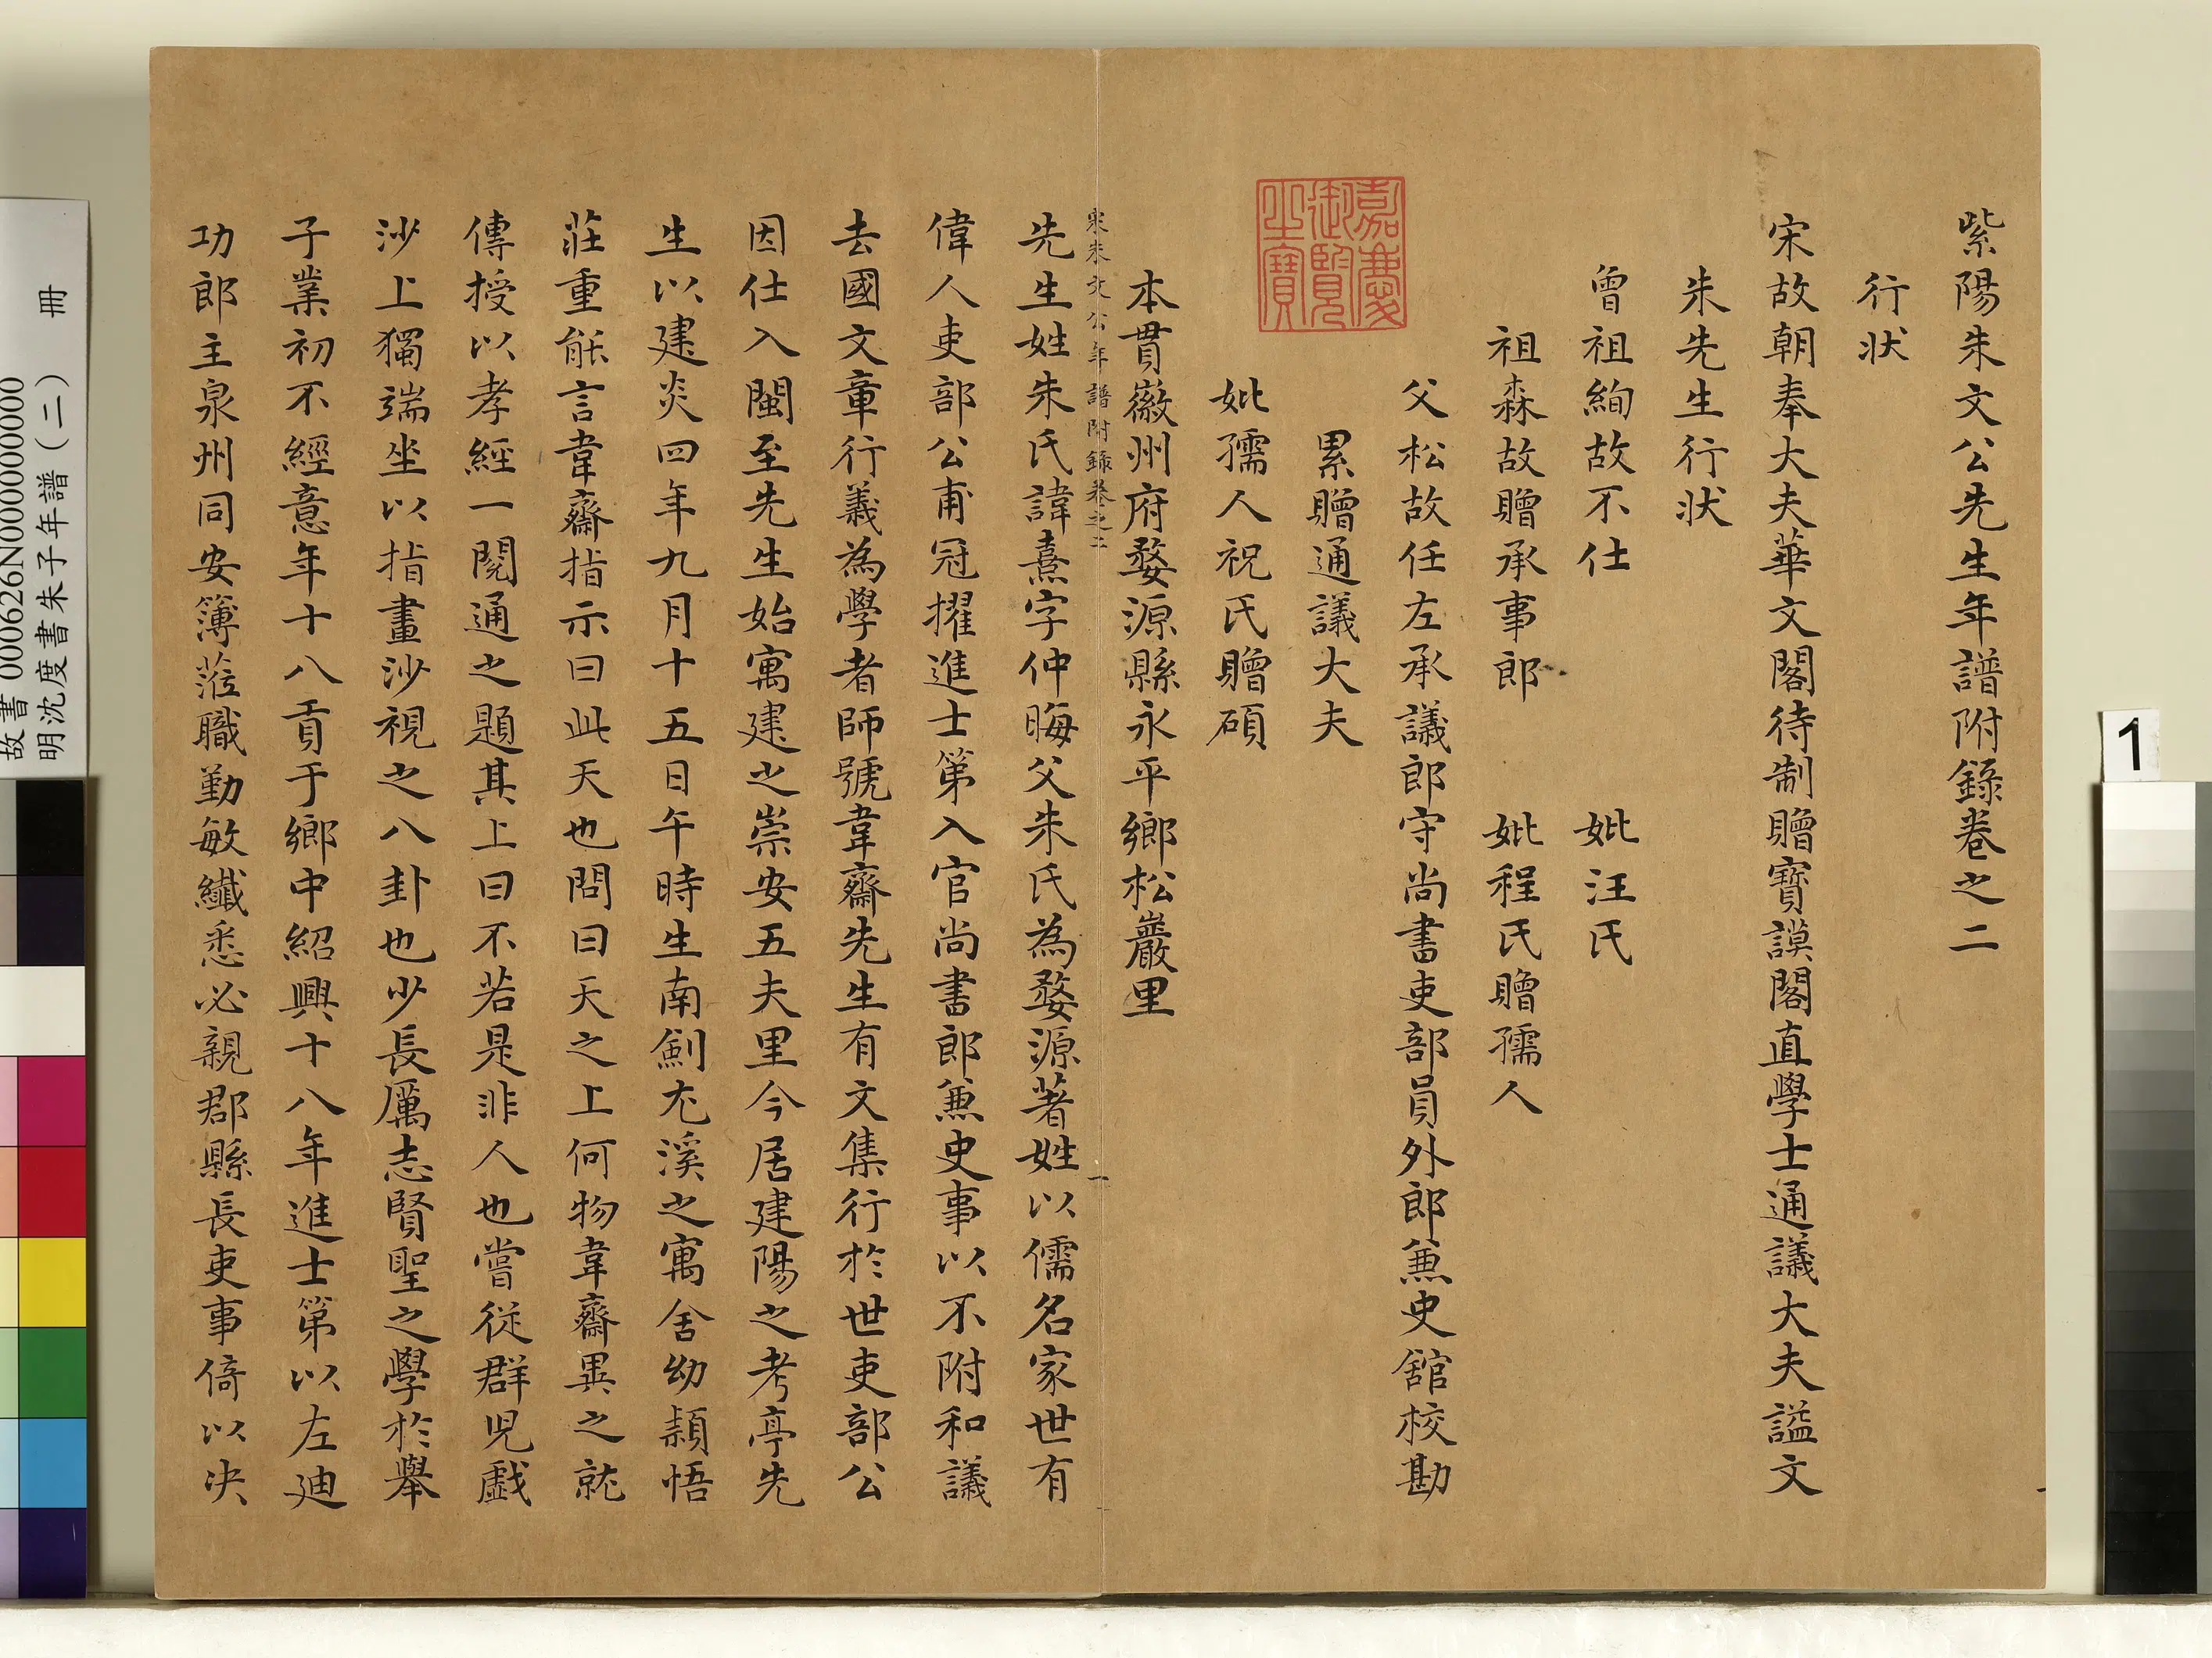 紫陽朱文公先生年譜附錄卷之二
行狀
宋故朝奉大夫華文閣待制贈寶謨閣直學士通議大夫謚文
朱先生行狀
曾祖絢故不仕 妣汪氏
祖森故贈承事郎 妣程氏贈孺人
父松故任左承議郎守尚書吏部員外郎兼史舘校勘
累贈通議大夫
妣孺人祝氏贈碩
嘉慶御覽之寶
本貫徽州府婺源縣永平鄉松巖里
宋朱文公年譜附錄卷之二
一
先生姓朱氏諱熹字仲晦父朱氏為婺源著姓以儒名家世有
偉人吏部公甫冠擢進士第入官尚書郎兼史事以不附和議
去國文章行義為學者師號韋齋先生有文集行於世吏部公
因仕入閩至先生始寓建之崇安五夫里今居建陽之考亭先
生以建炎四年九月十五日午時生南劍尤溪之寓舍幼穎悟
莊重能言韋齋指示曰此天也問曰天之上何物韋齋異之就
傳授以孝經一閱通之題其上曰不若是非人也嘗從群兒戲
沙上獨端坐以指畫沙視之八卦也少長厲志賢聖之學於舉
子業初不經意年十八貢于鄉中紹興十八年進士第以左迪
功郎主泉州同安簿蒞職勤敏纖悉必親郡縣長吏事倚以決
故書 000626N000000000
明沈度書朱子年譜(二) 冊
1